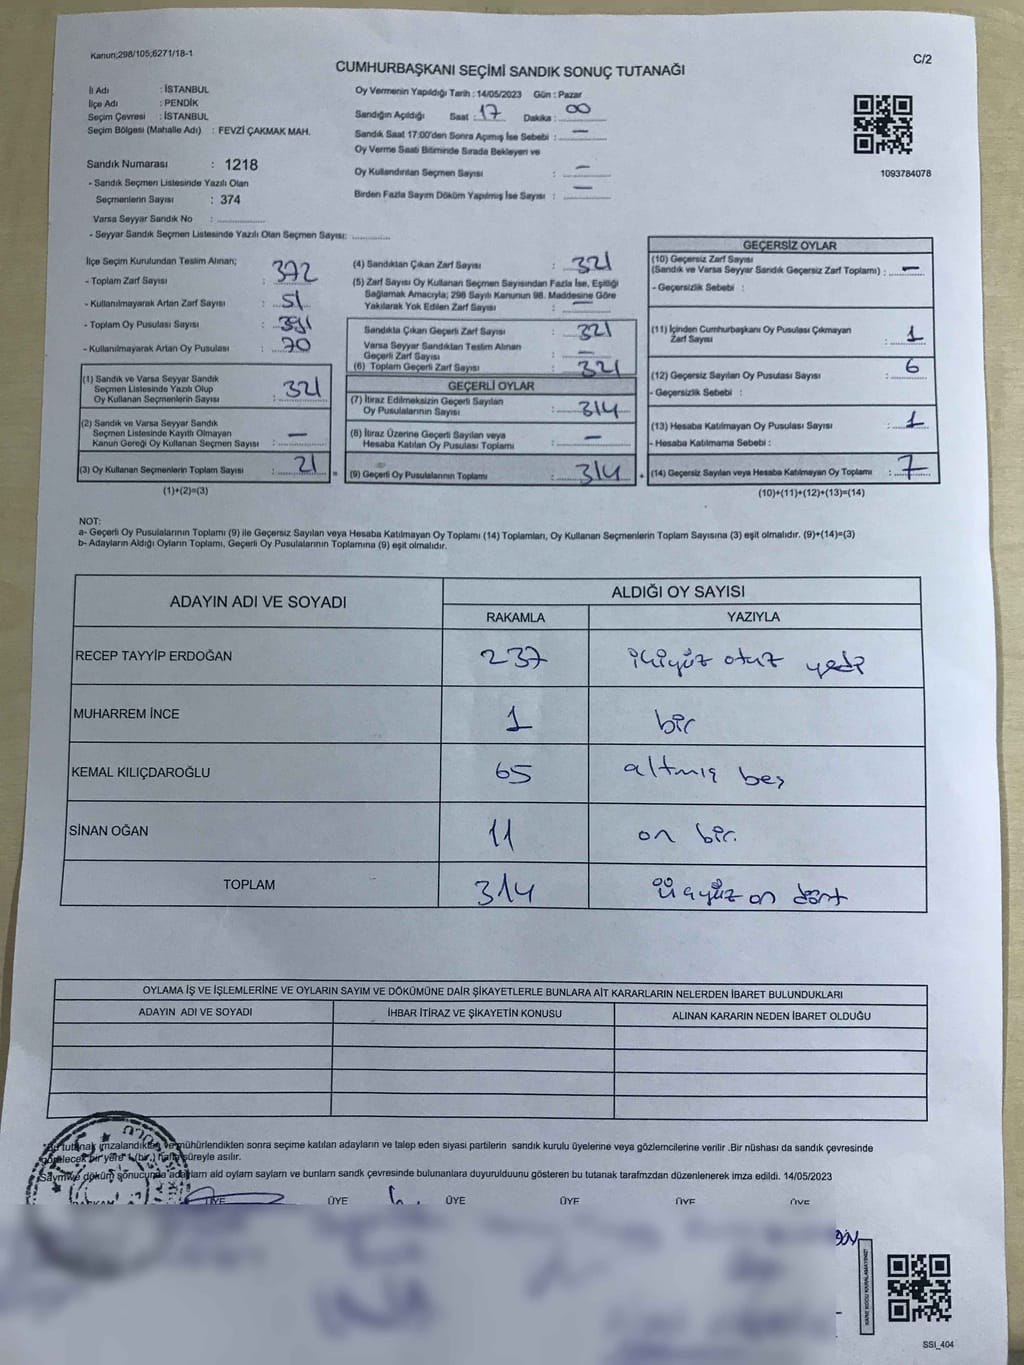 Kanun;298/105;6271/18-1
C/2
CUMHURBAŞKANI SEÇİMİ SANDIK SONUÇ TUTANAĞI
İl Adı : İSTANBUL
İlçe Adı : PENDİK
Seçim Çevresi : İSTANBUL
Seçim Bölgesi (Mahalle Adı) : FEVZİ ÇAKMAK MAH.
Sandık Numarası : 1218
- Sandık Seçmen Listesinde Yazılı Olan
Seçmenlerin Sayısı : 374
Varsa Seyyar Sandık No : ..............
- Seyyar Sandık Seçmen Listesinde Yazılı Olan Seçmen Sayısı: ............
Oy Vermenin Yapıldığı Tarih : 14/05/2023 Gün : Pazar
Sandığın Açıldığı Saat : 17 Dakika : 00
Sandık Saat 17:00'den Sonra Açımış İse Sebebi : —
Oy Verme Saati Bitiminde Sırada Bekleyen ve
Oy Kullandırılan Seçmen Sayısı : —
Birden Fazla Sayım Döküm Yapılmış İse Sayısı : —
1093784078
İlçe Seçim Kurulundan Teslim Alınan;
- Toplam Zarf Sayısı : 372
- Kullanılmayarak Artan Zarf Sayısı : 51
- Toplam Oy Pusulası Sayısı : 391
- Kullanılmayarak Artan Oy Pusulası : 70
(1) Sandık ve Varsa Seyyar Sandık
Seçmen Listesinde Yazılı Olup
Oy Kullanan Seçmenlerin Sayısı : 321
(2) Sandık ve Varsa Seyyar Sandık
Seçmen Listesinde Kayıtlı Olmayan
Kanun Gereği Oy Kullanan Seçmen Sayısı : —
(3) Oy Kullanan Seçmenlerin Toplam Sayısı : 21 =
(1)+(2)=(3)
(4) Sandıktan Çıkan Zarf Sayısı : 321
(5) Zarf Sayısı Oy Kullanan Seçmen Sayısından Fazla İse, Eşitliği
Sağlamak Amacıyla; 298 Sayılı Kanunun 98. Maddesine Göre
Yakılarak Yok Edilen Zarf Sayısı : —
Sandıkta Çıkan Geçerli Zarf Sayısı : 321
Varsa Seyyar Sandıktan Teslim Alınan
Geçerli Zarf Sayısı : —
(6) Toplam Geçerli Zarf Sayısı : 321
GEÇERLİ OYLAR
(7) İtiraz Edilmeksizin Geçerli Sayılan
Oy Pusulalarının Sayısı : 314
(8) İtiraz Üzerine Geçerli Sayılan veya
Hesaba Katılan Oy Pusulası Toplamı : —
(9) Geçerli Oy Pusulalarının Toplamı : 314 +
GEÇERSİZ OYLAR
(10) Geçersiz Zarf Sayısı
(Sandık ve Varsa Seyyar Sandık Geçersiz Zarf Toplamı) : —
- Geçersizlik Sebebi :
(11) İçinden Cumhurbaşkanı Oy Pusulası Çıkmayan
Zarf Sayısı : 1
(12) Geçersiz Sayılan Oy Pusulası Sayısı : 6
- Geçersizlik Sebebi :
(13) Hesaba Katılmayan Oy Pusulası Sayısı : 1
- Hesaba Katılmama Sebebi :
(14) Geçersiz Sayılan veya Hesaba Katılmayan Oy Toplamı : 7
(10)+(11)+(12)+(13)=(14)
NOT:
a- Geçerli Oy Pusulalarının Toplamı (9) ile Geçersiz Sayılan veya Hesaba Katılmayan Oy Toplamı (14) Toplamları, Oy Kullanan Seçmenlerin Toplam Sayısına (3) eşit olmalıdır. (9)+(14)=(3)
b- Adayların Aldığı Oyların Toplamı, Geçerli Oy Pusulalarının Toplamına (9) eşit olmalıdır.
ADAYIN ADI VE SOYADI ALDIĞI OY SAYISI
RAKAMLA YAZIYLA
RECEP TAYYİP ERDOĞAN 237 ikiyüz otuz yedi
MUHARREM İNCE 1 bir
KEMAL KILIÇDAROĞLU 65 altmış beş
SİNAN OĞAN 11 on bir.
TOPLAM 314 üçyüz on dört
OYLAMA İŞ VE İŞLEMLERİNE VE OYLARIN SAYIM VE DÖKÜMÜNE DAİR ŞİKAYETLERLE BUNLARA AİT KARARLARIN NELERDEN İBARET BULUNDUKLARI
ADAYIN ADI VE SOYADI İHBAR İTİRAZ VE ŞİKAYETİN KONUSU ALINAN KARARIN NEDEN İBARET OLDUĞU
tutanak imzalandıktan ve mühürlendikten sonra seçime katılan adayların ve talep eden siyasi partilerin sandık kurulu üyelerine veya gözlemcilerine verilir .Bir nüshası da sandık çevresinde
görülecek bir yere 1 (bir) hafta süreyle asılır.
Sayım ve döküm sonucunda adaylarn ald oylarn saylarn ve bunlarn sandk çevresinde bulunanlara duyurulduunu gösteren bu tutanak tarafmzdan düzenlenerek imza edildi. 14/05/2023
ÜYE ÜYE ÜYE ÜYE ÜYE ÜYE
KARE KODU KARALAMAYINIZ!
SSI_404